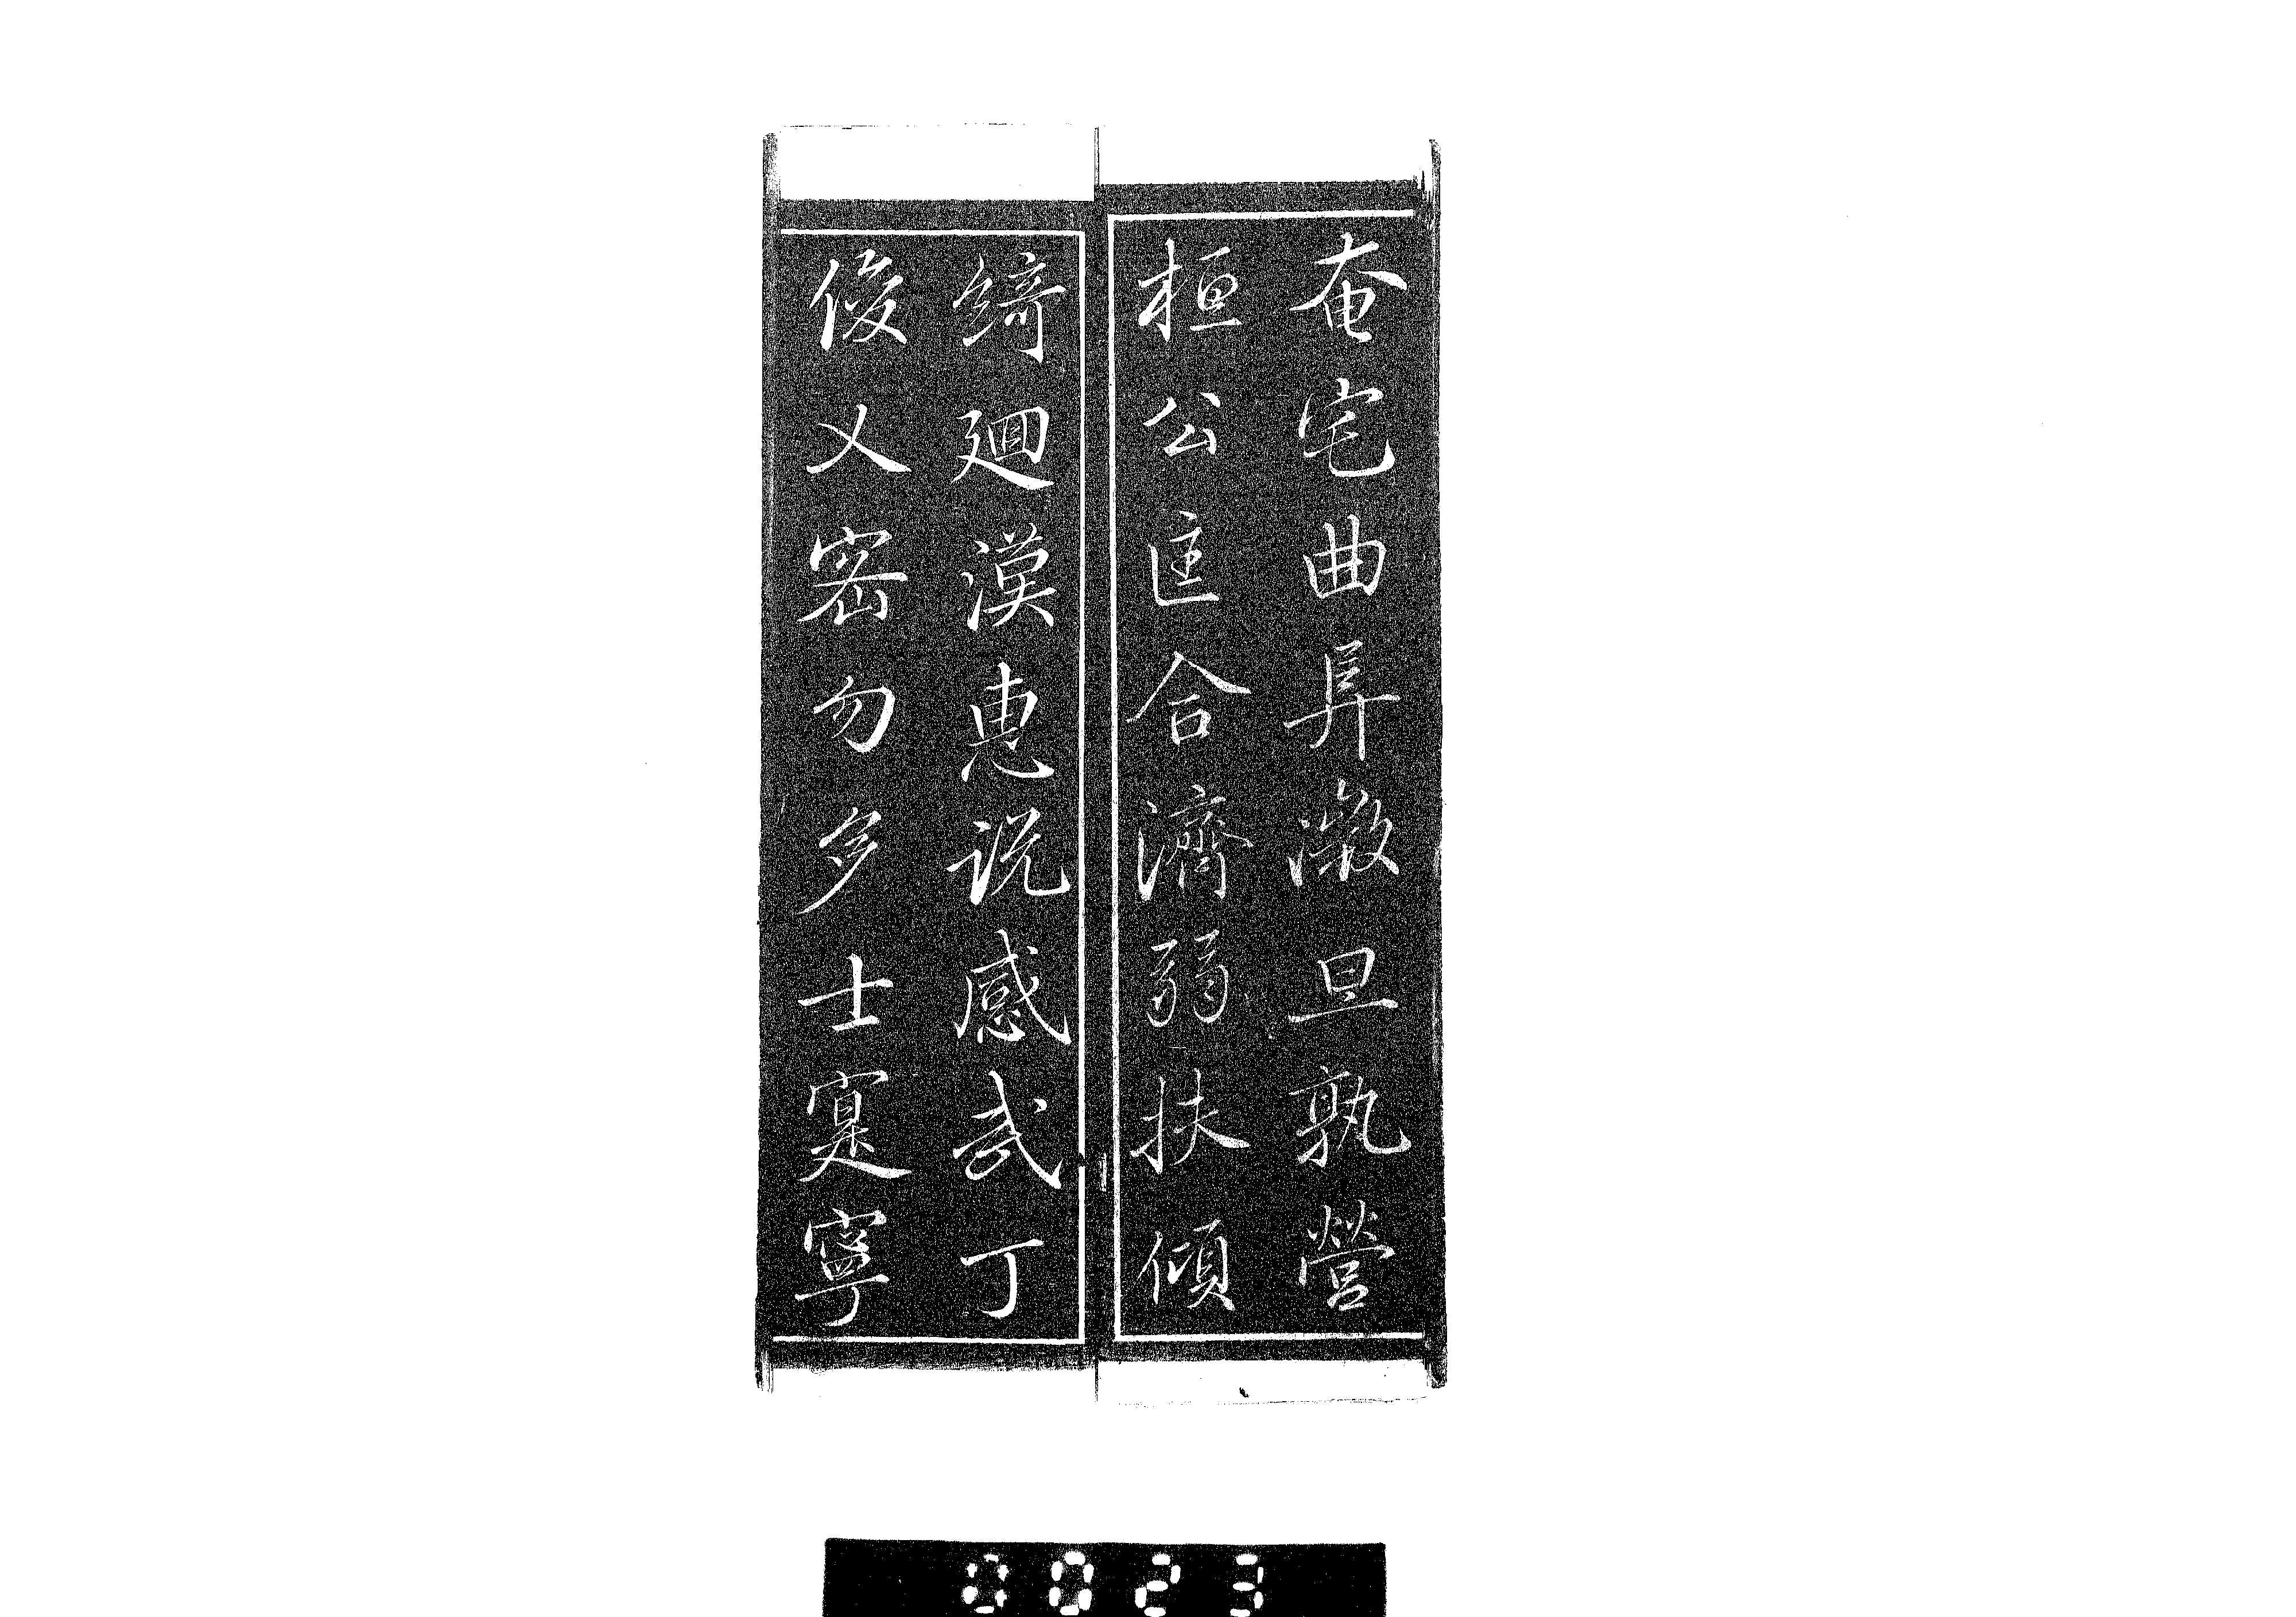 奄宅曲阜微旦孰營
桓公匡合濟弱扶傾
綺迴漢惠说感武丁
俊乂密勿多士寔寧
0023